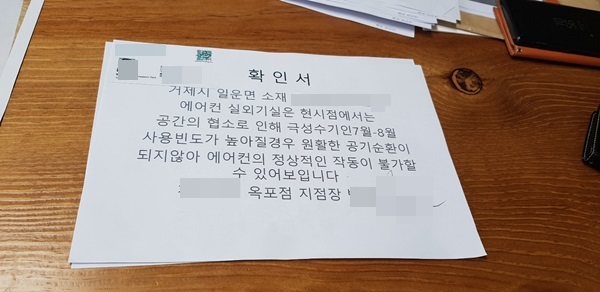 확 인 서
거제시 일운면 소재
에어컨 실외기실은 현시점에서는
공간의 협소로 인해 극성수기인7월-8월
사용빈도가 높아질경우 원활한 공기순환이
되지않아 에어컨의 정상적인 작동이 불가할
수 있어보입니다
옥포점 지점장